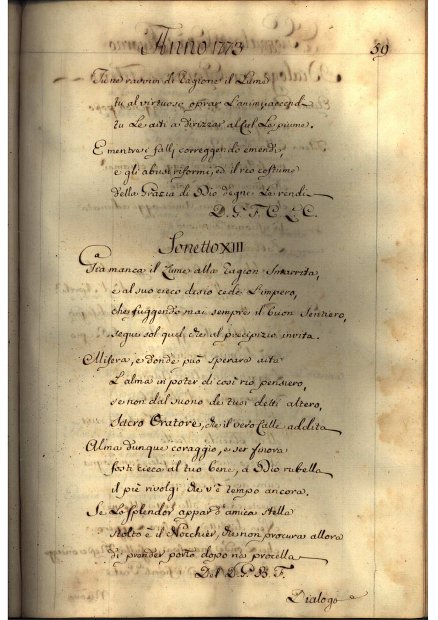 Anno 1773 59
Tu ne ravvivi di Ragione il Lume
tu al virtuoso oprar L'anim'accendi
tu Le aiti a dirizzar al Ciel Le piume.
E mentre i falli correggendo emendi,
e gli abusi riformi, ed il reo costume
della Grazia di Dio degne Le rendi
D. G. F. C. L. C.
Sonetto XIII
Già manca il Lume alla Ragion smarrita,
e al suo cieco desio cede L'impero,
che fuggendo mai sempre il buon sentiero,
segue sol quel che al precipizio invita.
Misera, e donde può sperare aita
L'alma in poter di così rio pensiero,
se non dal suono de tuoi detti altero,
Sacro Oratore, che il vero Calle addita
Alma dunque coraggio, e se finora
fosti cieca al tuo bene, a Dio rubella
il piè rivolgi, che v'è tempo ancora.
Se Lo splendor appar d'amica stella
stolto è il Nocchier, che non procura allora
di prender porto dopo na procella
Del D. G. B. F.
Dialogo